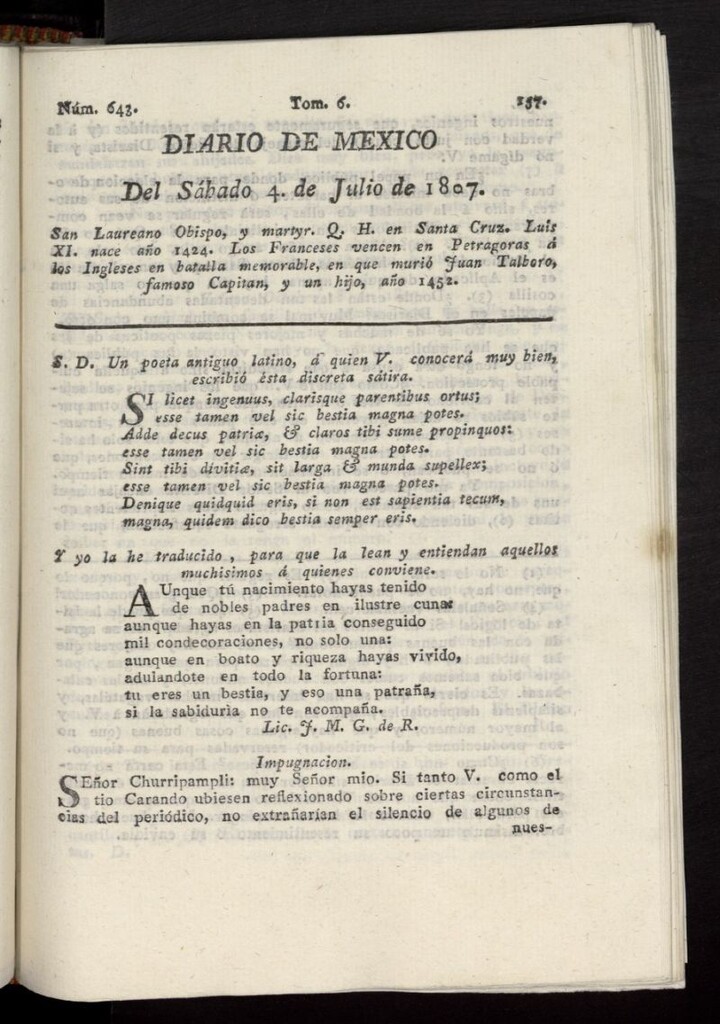 Núm. 643. Tom. 6. 157.
DIARIO DE MEXICO
Del Sábado 4. de Julio de 1807.
San Laureano Obispo, y martyr. Q. H. en Santa Cruz. Luis
XI. nace año 1424. Los Franceses vencen en Petragoras á
los Ingleses en batalla memorable, en que murió Juan Talboro,
famoso Capitan, y un hijo, año 1452.
S. D. Un poeta antiguo latino, á quien V. conocerá muy bien,
escribió ésta discreta sátira.
SI licet ingenuus, clarisque parentibus ortus;
esse tamen vel sic bestia magna potes.
Adde decus patriæ, & claros tibi sume propinquos:
esse tamen vel sic bestia magna potes.
Sint tibi divitiæ, sit larga & munda supellex;
esse tamen vel sic bestia magna potes.
Denique quidquid eris, si non est sapientia tecum,
magna, quidem dico bestia semper eris.
Y yo la he traducido, para que la lean y entiendan aquellos
muchisimos á quienes conviene.
AUnque tú nacimiento hayas tenido
de nobles padres en ilustre cuna:
aunque hayas en la patria conseguido
mil condecoraciones, no solo una:
aunque en boato y riqueza hayas vivido,
adulandote en todo la fortuna:
tu eres un bestia, y eso una patraña,
si la sabiduría no te acompaña.
Lic. J. M. G. de R.
Impugnacion.
SEñor Churripampli: muy Señor mio. Si tanto V. como el
tio Carando ubiesen reflexionado sobre ciertas circunstan-
cias del periódico, no extrañarían el silencio de algunos de
nues-